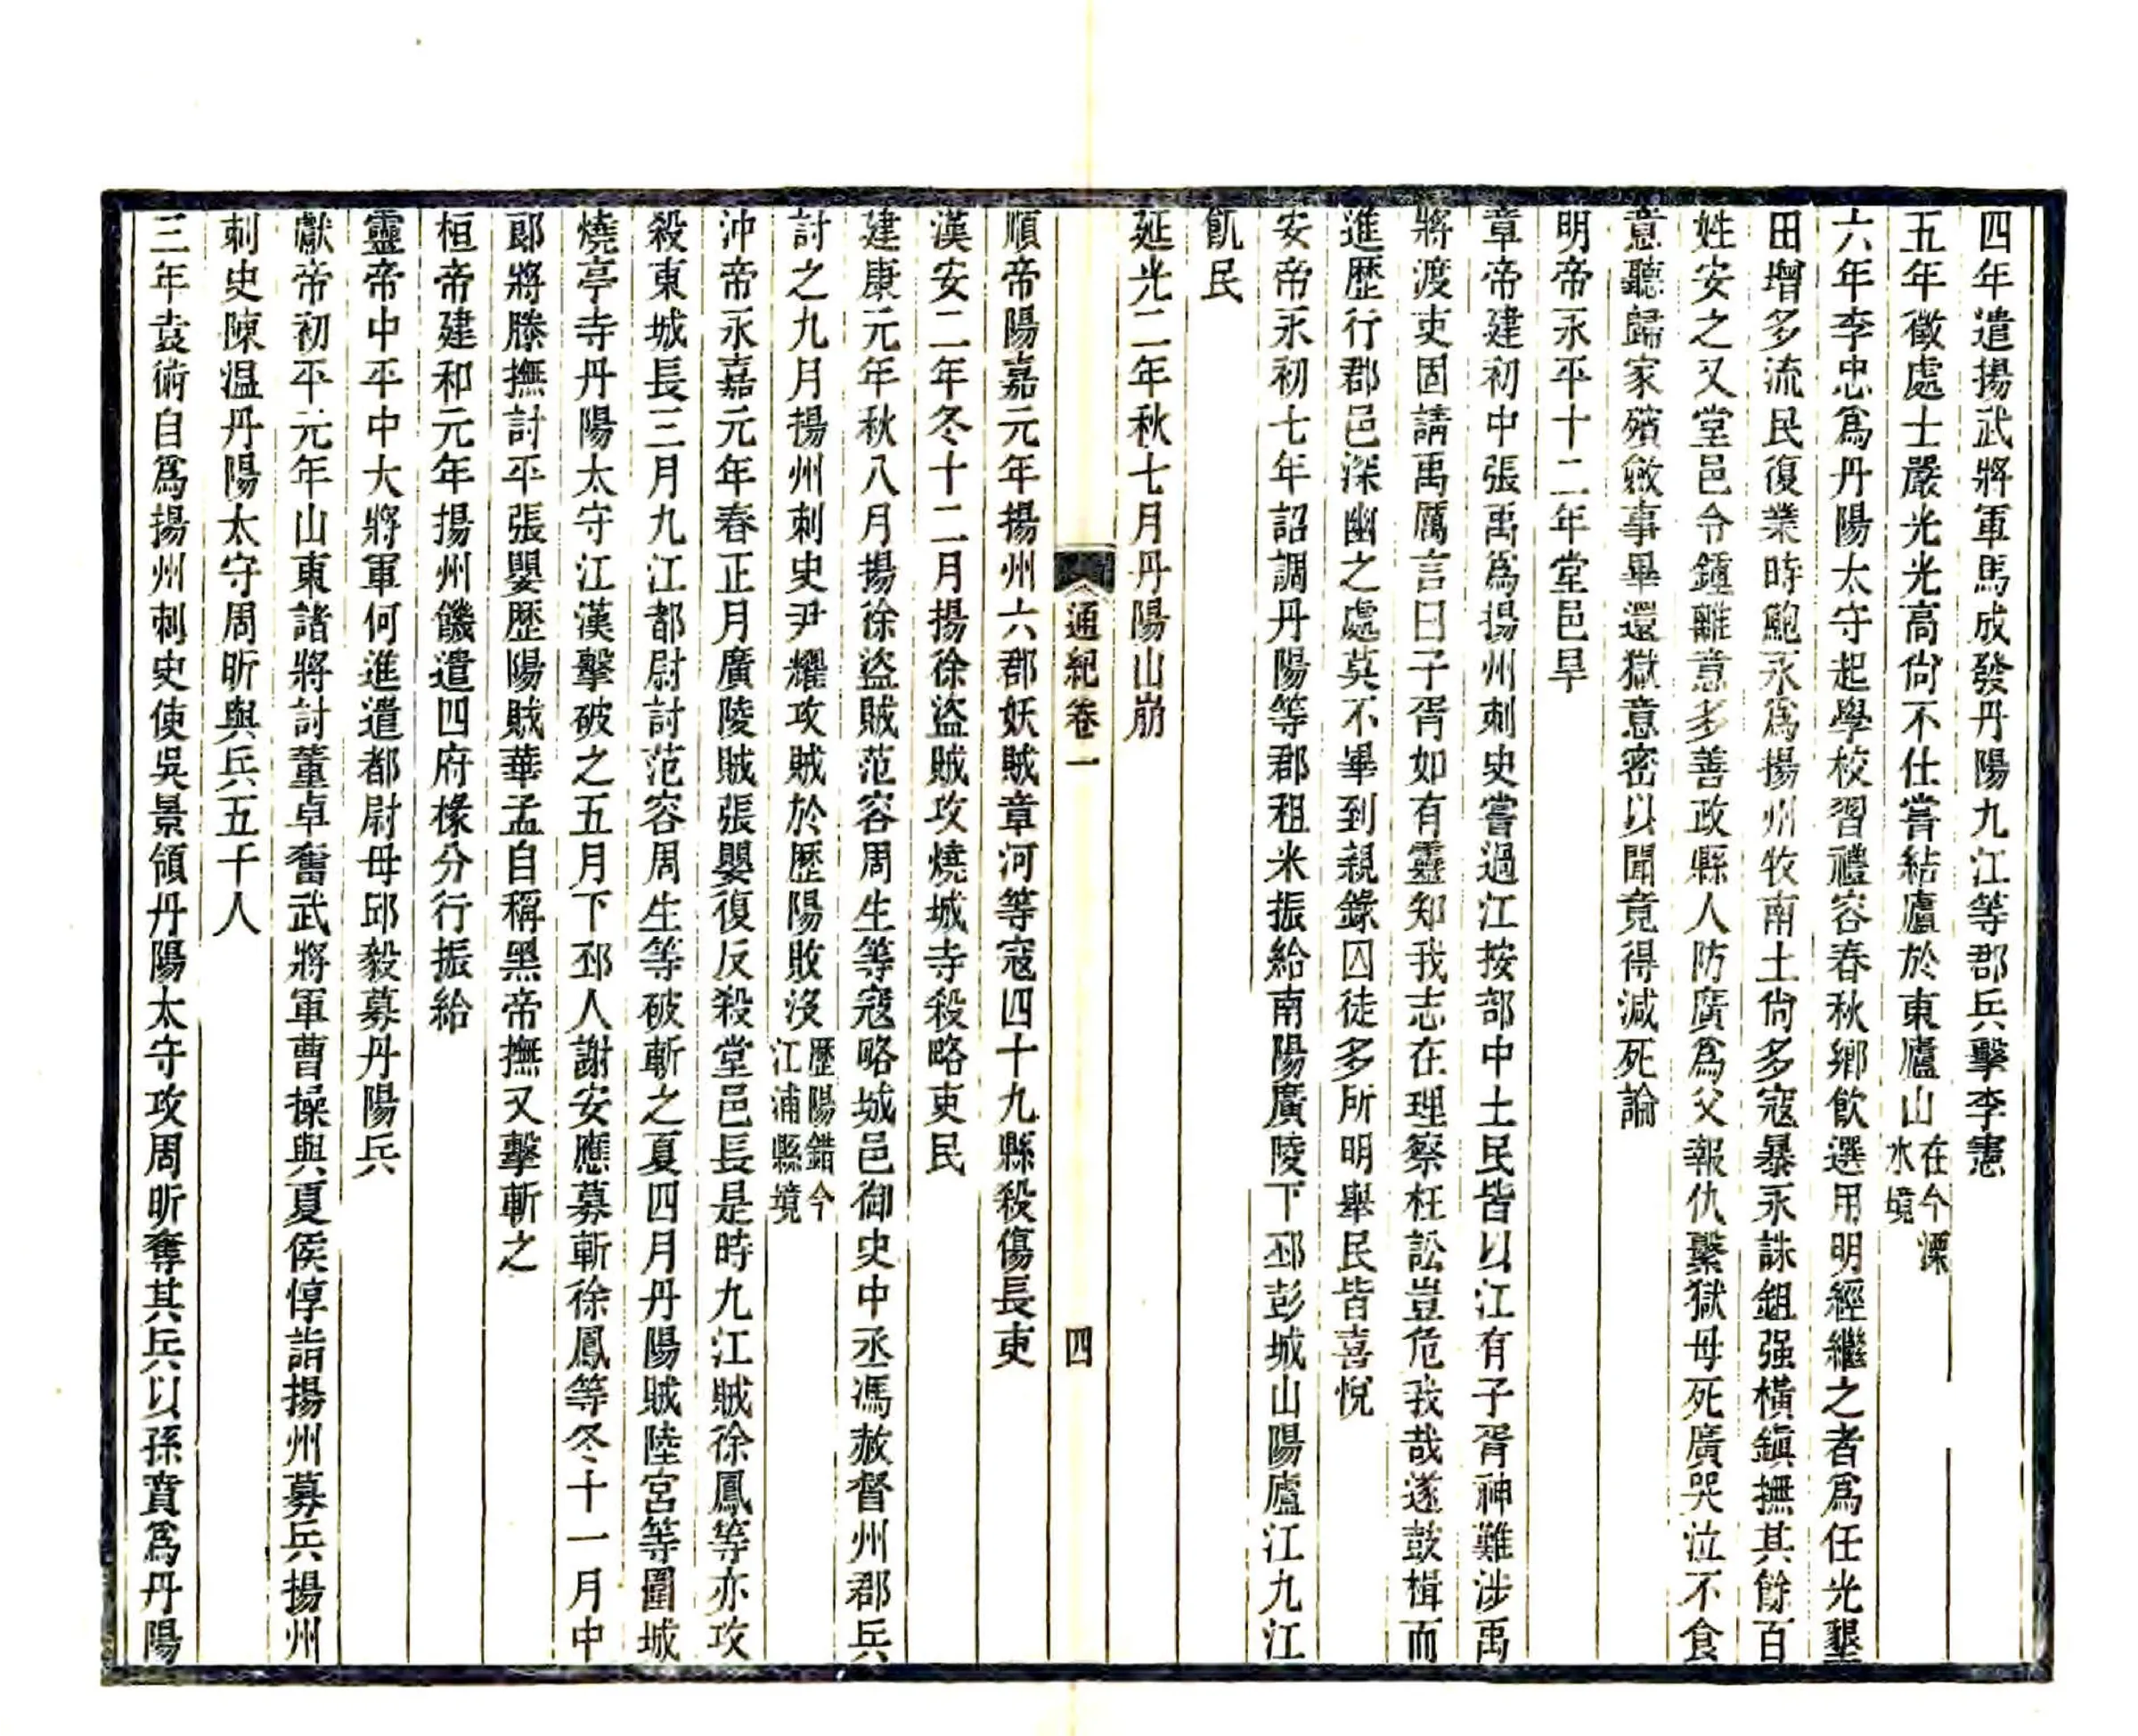 四年遣揚武將軍馬成發丹陽九江等郡兵擊李憲
五年徵處士嚴光光高尙不仕嘗結廬於東廬山在今溧水境
六年李忠爲丹陽太守起學校習禮容春秋鄉飲選用明經繼之者爲任光墾
田增多流民復業時鮑永爲揚州牧南土尙多寇暴永誅鉏强橫鎭撫其餘百
姓安之又堂邑令鍾離意多善政縣人防廣爲父報仇繫獄母死廣哭泣不食
意聽歸家殯斂事畢還獄意密以聞竟得減死論
明帝永平十二年堂邑旱
章帝建初中張禹爲揚州刺史嘗過江按部中土民皆以江有子胥神難涉禹
將渡吏固請禹厲言曰子胥如有靈知我志在理察枉訟豈危我哉遂鼓楫而
進歷行郡邑深幽之處莫不畢到親錄囚徒多所明舉民皆喜悅
安帝永初七年詔調丹陽等郡租米振給南陽廣陵下邳彭城山陽廬江九江
飢民
延光二年秋七月丹陽山崩
通紀卷一 四
順帝陽嘉元年揚州六郡妖賊章河等寇四十九縣殺傷長吏
漢安二年冬十二月揚徐盜賊攻燒城寺殺略吏民
建康元年秋八月揚徐盜賊范容周生等寇略城邑御史中丞馮赦督州郡兵
討之九月揚州刺史尹耀攻賊於歷陽敗沒歷陽錯今江浦縣境
沖帝永嘉元年春正月廣陵賊張嬰復反殺堂邑長是時九江賊徐鳳等亦攻
殺東城長三月九江都尉討范容周生等破斬之夏四月丹陽賊陸宮等圍城
燒亭寺丹陽太守江漢擊破之五月下邳人謝安應募斬徐鳳等冬十一月中
郎將滕撫討平張嬰歷陽賊華孟自稱黑帝撫又擊斬之
桓帝建和元年揚州饑遣四府掾分行振給
靈帝中平中大將軍何進遣都尉毋邱毅募丹陽兵
獻帝初平元年山東諸將討董卓奮武將軍曹操與夏侯惇詣揚州募兵揚州
刺史陳温丹陽太守周昕與兵五千人
三年袁術自爲揚州刺史使吳景領丹陽太守攻周昕奪其兵以孫賁爲丹陽